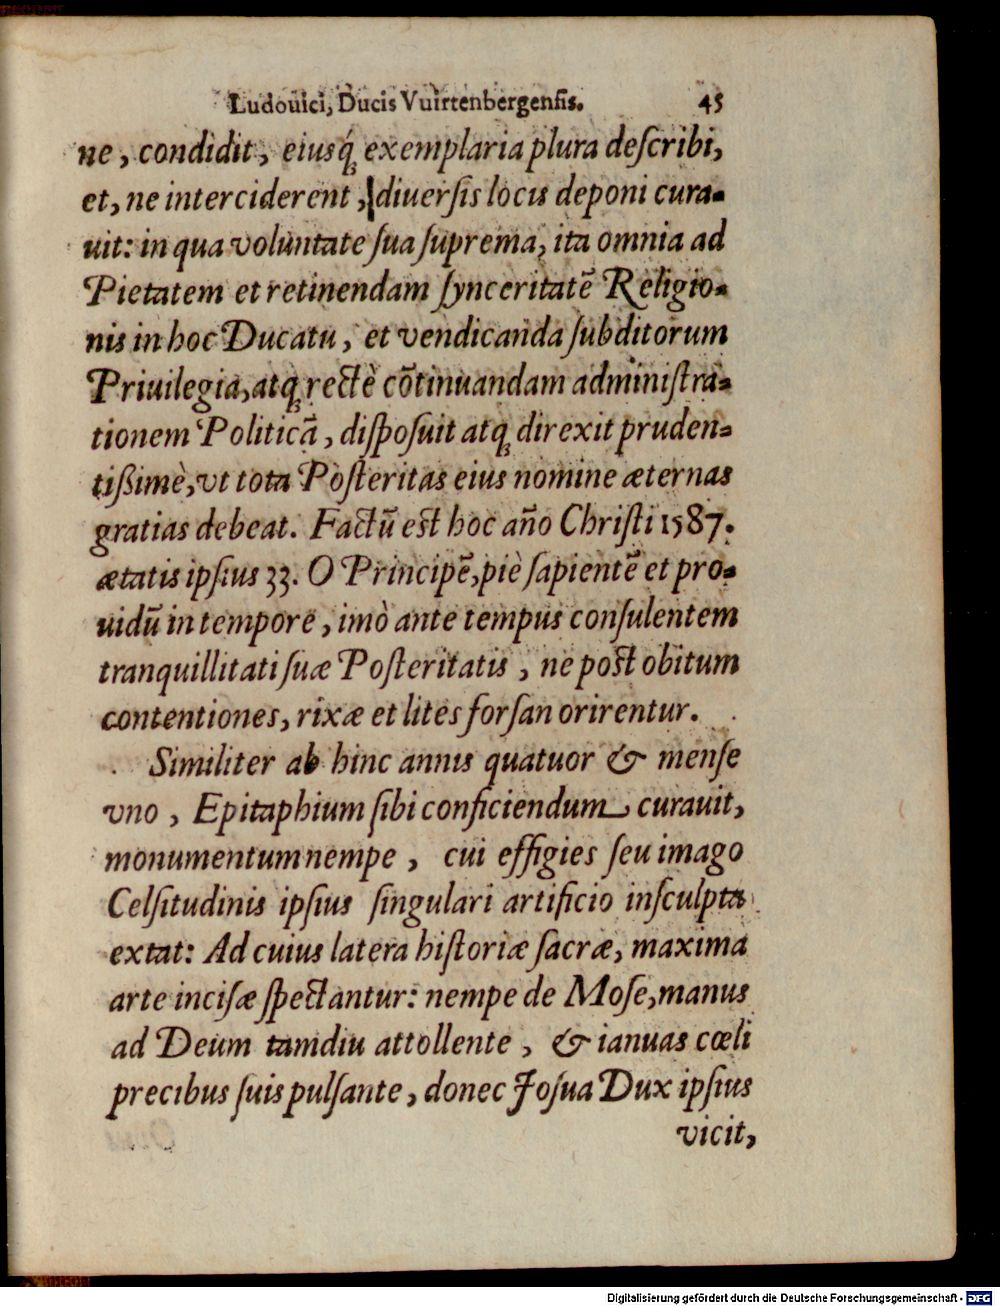 Ludouici, Ducis Vuirtenbergensis. 45
ne, condidit, eiusq́; exemplaria plura deſcribi,
et, ne interciderent, diuerſis locis deponi cura-
uit: in qua voluntate ſua ſuprema, ita omnia ad
Pietatem et retinendam ſynceritatẽ Religio-
nis in hoc Ducatu, et vendicanda ſubditorum
Priuilegia, atq; rectè cõtinuandam adminiſtra-
tionem Politicã, diſpoſuit atq; direxit pruden-
tißimè, vt tota Poſteritas eius nomine æternas
gratias debeat. Factũ est hoc año Chriſti 1587.
ætatis ipſius 33. O Principẽ, piè ſapientẽ et pro-
uidũ in tempore, imò ante tempus conſulentem
tranquillitati ſuæ Poſteritatis, ne post obitum
contentiones, rixæ et lites forſan orirentur.
Similiter ab hinc annis quatuor & menſe
vno, Epitaphium ſibi conficiendum curauit,
monumentum nempe, cui effigies ſeu imago
Celſitudinis ipſius ſingulari artificio inſculpta
extat: Ad cuius latera hiſtoriæ ſacræ, maxima
arte inciſæ ſpectantur: nempe de Moſe, manus
ad Deum tamdiu attollente, & ianuas cœli
precibus ſuis pulſante, donec Joſua Dux ipſius
vicit,
Digitalisierung gefördert durch die Deutsche Forschungsgemeinschaft - DFG